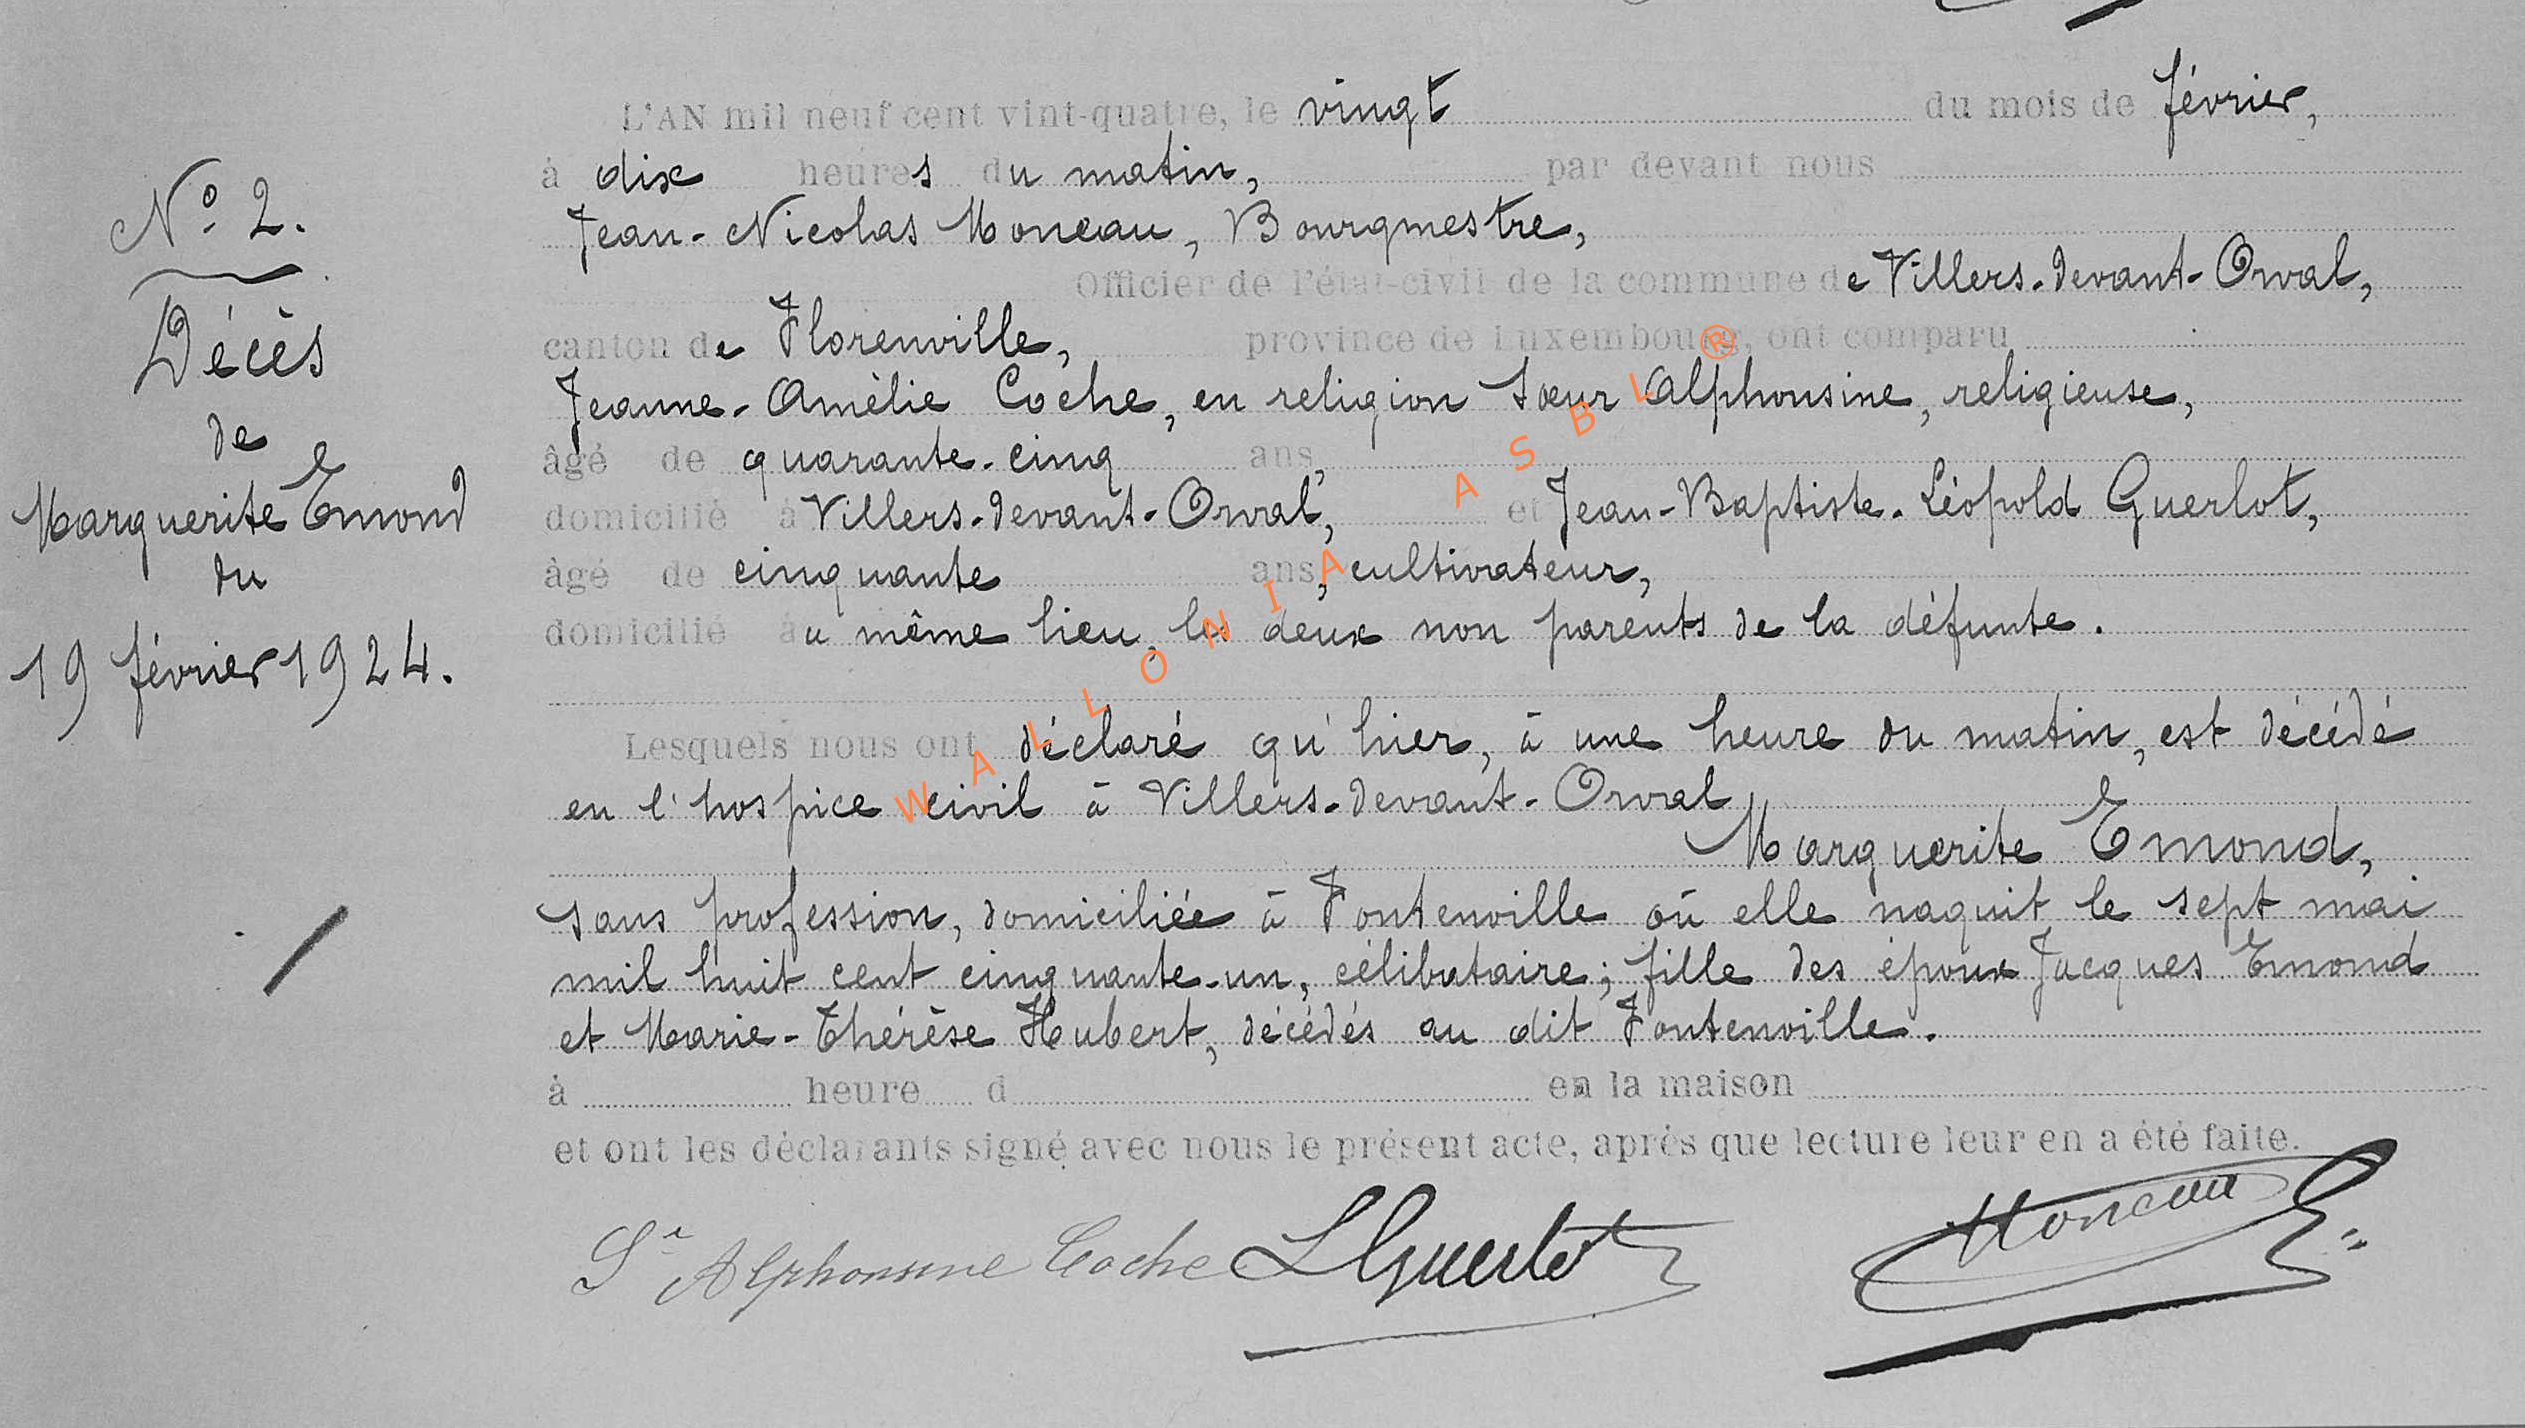 L'AN mil neuf cent vint-quatre, le vingt du mois de février,
à dix heures du matin, par devant nous
Jean-Nicolas Moneau, Bourgmestre,
Officier de l'état-civil de la commune de Villers-devant-Orval,
canton de Florenville, province de Luxembourg, ont comparu
Jeanne-Amélie Coche, en religion Sœur Alphonsine, religieuse,
âgé de quarante-cinq ans,
domicilié à Villers-devant-Orval, et Jean-Baptiste-Léopold Guerlot,
âgé de cinquante ans, cultivateur,
domicilié au même lieu, les deux non parents de la défunte.
Lesquels nous ont déclaré qu'hier, à une heure du matin, est décédé
en l'hospice civil à Villers-devant-Orval,
Marguerite Emond,
sans profession, domiciliée à Fontenoille où elle naquit le sept mai
mil huit cent cinquante-un, célibataire; fille des époux Jacques Emond
et Marie-Thérèse Hubert, décédés au dit Fontenoille.
à heure d en la maison
et ont les déclarants signé avec nous le présent acte, après que lecture leur en a été faite.
Sr Alphonsine Coche LGuerlot Moneau
N° 2.
Décès
de
Marguerite Emond
du
19 février 1924.
WALLONIA ASBL ®